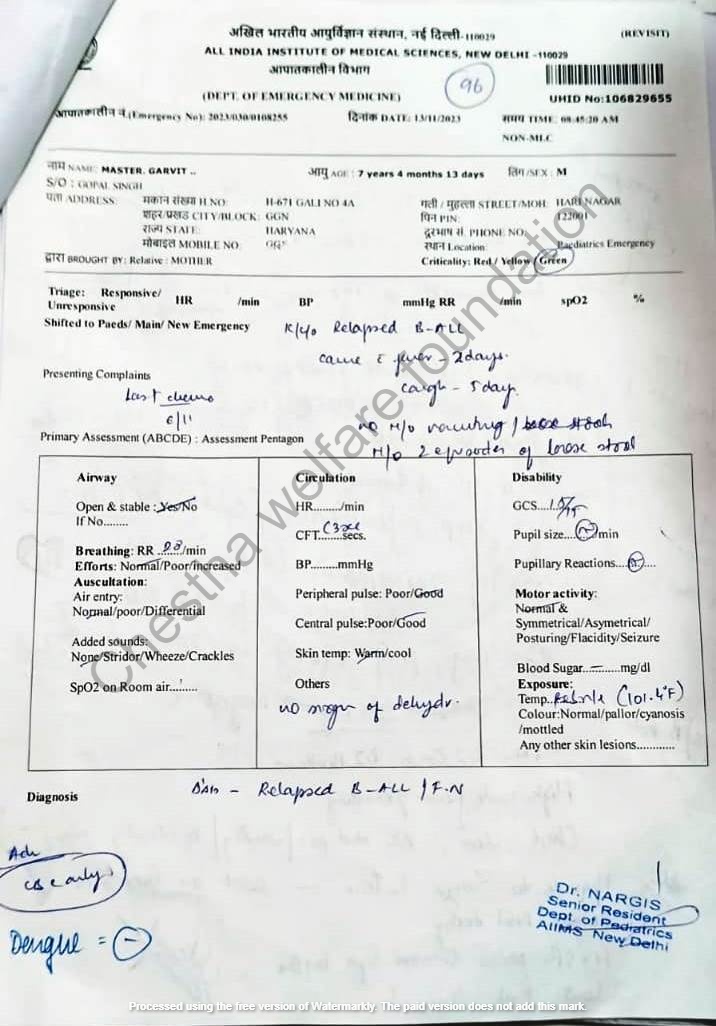 अखिल भारतीय आयुर्विज्ञान संस्थान, नई दिल्ली-110029
(REVISIT)
ALL INDIA INSTITUTE OF MEDICAL SCIENCES, NEW DELHI -110029
आपातकालीन विभाग
96
(DEPT. OF EMERGENCY MEDICINE)
UHID No:106829655
आपातकालीन नं.(Emergency No): 2023/030/0108255 दिनांक DATE: 13/11/2023 समय TIME: 08:45:20 AM
NON-MLC
नाम NAME: MASTER. GARVIT .. आयु AGE : 7 years 4 months 13 days लिंग /SEX : M
S/O : GOPAL SINGH
पता ADDRESS: मकान संख्या H.NO: H-671 GALI NO 4A गली / मुहल्ला STREET/MOH: HARI NAGAR
शहर/प्रखंड CITY/BLOCK: GGN पिन PIN: 122001
राज्य STATE: HARYANA दूरभाष सं. PHONE NO:
मोबाइल MOBILE NO: स्थान Location: Paediatrics Emergency
द्वारा BROUGHT BY: Relative : MOTHER Criticality: Red / Yellow / Green
Triage: Responsive/ HR /min BP mmHg RR /min spO2 %
Unresponsive
Shifted to Paeds/ Main/ New Emergency K/c/o Relapsed B-ALL
came c fever - 2days.
Presenting Complaints cough - 5day
Last chemo
6/11
no H/o vomiting / loose stools
Primary Assessment (ABCDE) : Assessment Pentagon
H/o 2 episodes of loose stool
Airway
Open & stable : Yes/No
If No........
Breathing: RR 28/min
Efforts: Normal/Poor/increased
Auscultation:
Air entry:
Normal/poor/Differential
Added sounds:
None/Stridor/Wheeze/Crackles
SpO2 on Room air.........
Circulation
HR........./min
CFT <3sec secs.
BP.........mmHg
Peripheral pulse: Poor/Good
Central pulse:Poor/Good
Skin temp: Warm/cool
Others
no sign of dehydr.
Disability
GCS....15/15
Pupil size.... min
Pupillary Reactions....
Motor activity:
Normal &
Symmetrical/Asymetrical/
Posturing/Flacidity/Seizure
Blood Sugar.........mg/dl
Exposure:
Temp..Febrile (101.4°F)
Colour:Normal/pallor/cyanosis
/mottled
Any other skin lesions............
Diagnosis
- Relapsed B-ALL / F.N
Adv
Dengue = -
Dr. NARGIS
Senior Resident
Dept. of Pediatrics
AIIMS New Delhi
Chestha welfare foundation
Processed using the free version of Watermarkly. The paid version does not add this mark.